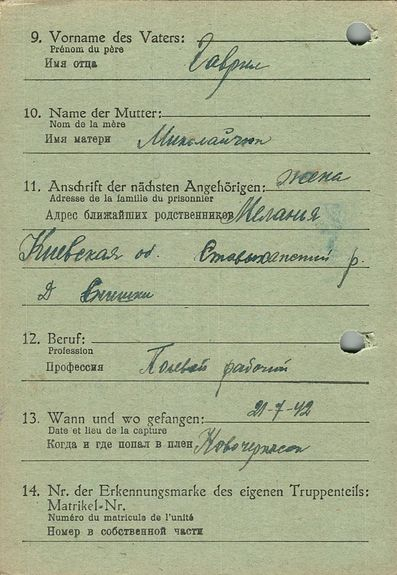 9. Vorname des Vaters:
Prénom du père
Имя отца
Гаврил
10. Name der Mutter:
Nom de la mère
Имя матери
Миколайчук
11. Anschrift der nächsten Angehörigen: жена
Adresse de la famille du prisonnier
Адрес ближайших родственников Мелания
Киевская об. р.
Д
12. Beruf:
Profession
Профессия
Полевай рабочий
13. Wann und wo gefangen: 21-7-42
Date et lieu de la capture
Когда и где попал в плен Новочеркаск
14. Nr. der Erkennungsmarke des eigenen Truppenteils:
Matrikel-Nr.
Numéro du matricule de l'unité
Номер в собственной части